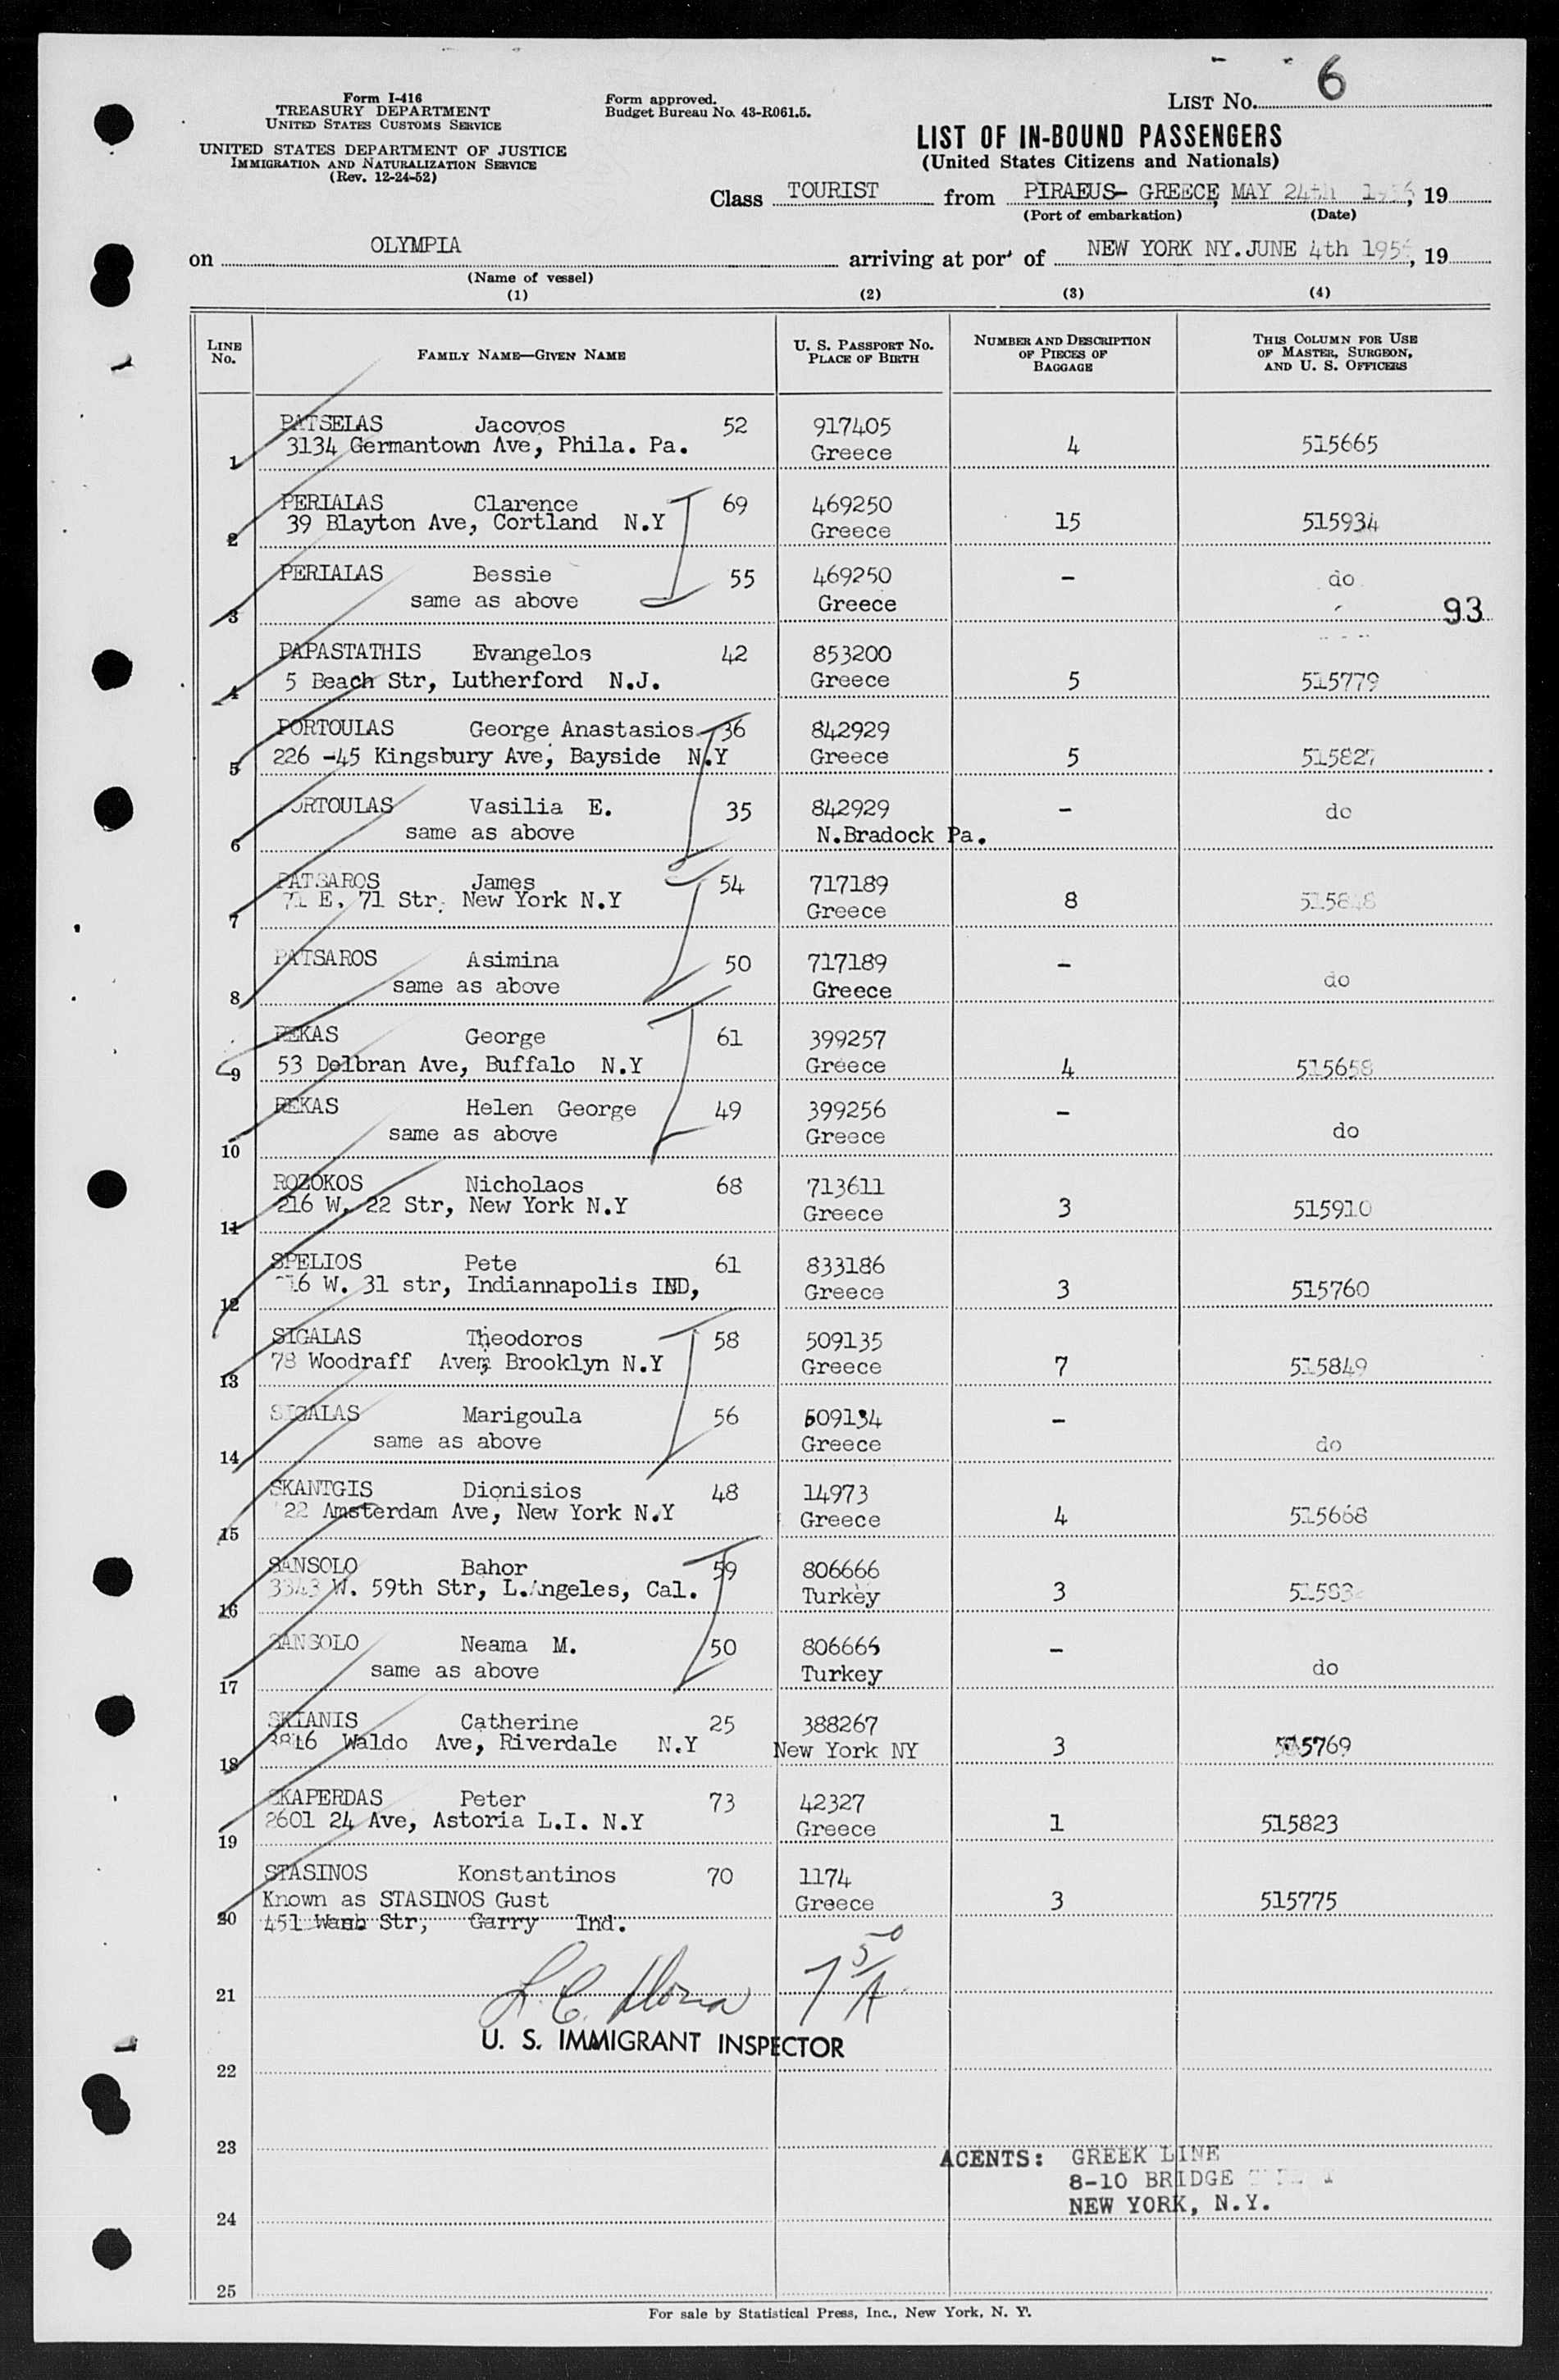 LIST NO. 6
Form I-416
TREASURY DEPARTMENT
UNITED STATES CUSTOMS SERVICE
UNITED STATES DEPARTMENT OF JUSTICE
IMMIGRATION AND NATURALIZATION SERVICE
(Rev. 12-24-52)
Form approved.
Budget Bureau No. 43-R061.5.
LIST OF IN-BOUND PASSENGERS
(United States Citizens and Nationals)
Class TOURIST from PIRAEUS- GREECE, MAY 24th 1956, 19
(Port of embarkation) (Date)
on OLYMPIA arriving at port of NEW YORK NY. JUNE 4th 1956, 19
(Name of vessel)
(1) (2) (3) (4)
LINE No. FAMILY NAME—GIVEN NAME U. S. PASSPORT NO. PLACE OF BIRTH NUMBER AND DESCRIPTION OF PIECES OF BAGGAGE THIS COLUMN FOR USE OF MASTER, SURGEON, AND U. S. OFFICERS
PATSELAS Jacovos 52 917405
1 3134 Germantown Ave, Phila. Pa. Greece 4 515665
PERIALAS Clarence 69 469250
2 39 Blayton Ave, Cortland N.Y Greece 15 515934
PERIALAS Bessie 55 469250 - do
3 same as above Greece 93
PAPASTATHIS Evangelos 42 853200
4 5 Beach Str, Lutherford N.J. Greece 5 515779
PORTOULAS George Anastasios 36 842929
5 226 -45 Kingsbury Ave, Bayside N.Y Greece 5 515827
PORTOULAS Vasilia E. 35 842929 - do
6 same as above N.Bradock Pa.
PATSAROS James 54 717189
7 71 E. 71 Str, New York N.Y Greece 8 515848
PATSAROS Asimina 50 717189 - do
8 same as above Greece
REKAS George 61 399257
9 53 Delbran Ave, Buffalo N.Y Greece 4 515658
REKAS Helen George 49 399256 -
10 same as above Greece do
ROZOKOS Nicholaos 68 713611
11 216 W. 22 Str, New York N.Y Greece 3 515910
SPELIOS Pete 61 833186
12 W. 31 str, Indiannapolis IND, Greece 3 515760
SIGALAS Theodoros 58 509135
13 78 Woodraff Ave, Brooklyn N.Y Greece 7 515849
SIGALAS Marigoula 56 509134 -
14 same as above Greece do
SKANTGIS Dionisios 48 14973
15 Amsterdam Ave, New York N.Y Greece 4 515668
SANSOLO Bahor 59 806666
16 3343 W. 59th Str, L.Angeles, Cal. Turkey 3
SANSOLO Neama M. 50 806665 -
17 same as above Turkey do
SKIANIS Catherine 25 388267
18 Waldo Ave, Riverdale N.Y New York NY 3 515769
SKAPERDAS Peter 73 42327
19 2601 24 Ave, Astoria L.I. N.Y Greece 1 515823
STASINOS Konstantinos 70 1174
Known as STASINOS Gust Greece 3 515775
20 451 Wash Str, Garry Ind.
21 7 50/A
U. S. IMMIGRANT INSPECTOR
22
23
AGENTS: GREEK LINE
8-10 BRIDGE
NEW YORK, N.Y.
24
25
For sale by Statistical Press, Inc., New York, N. Y.